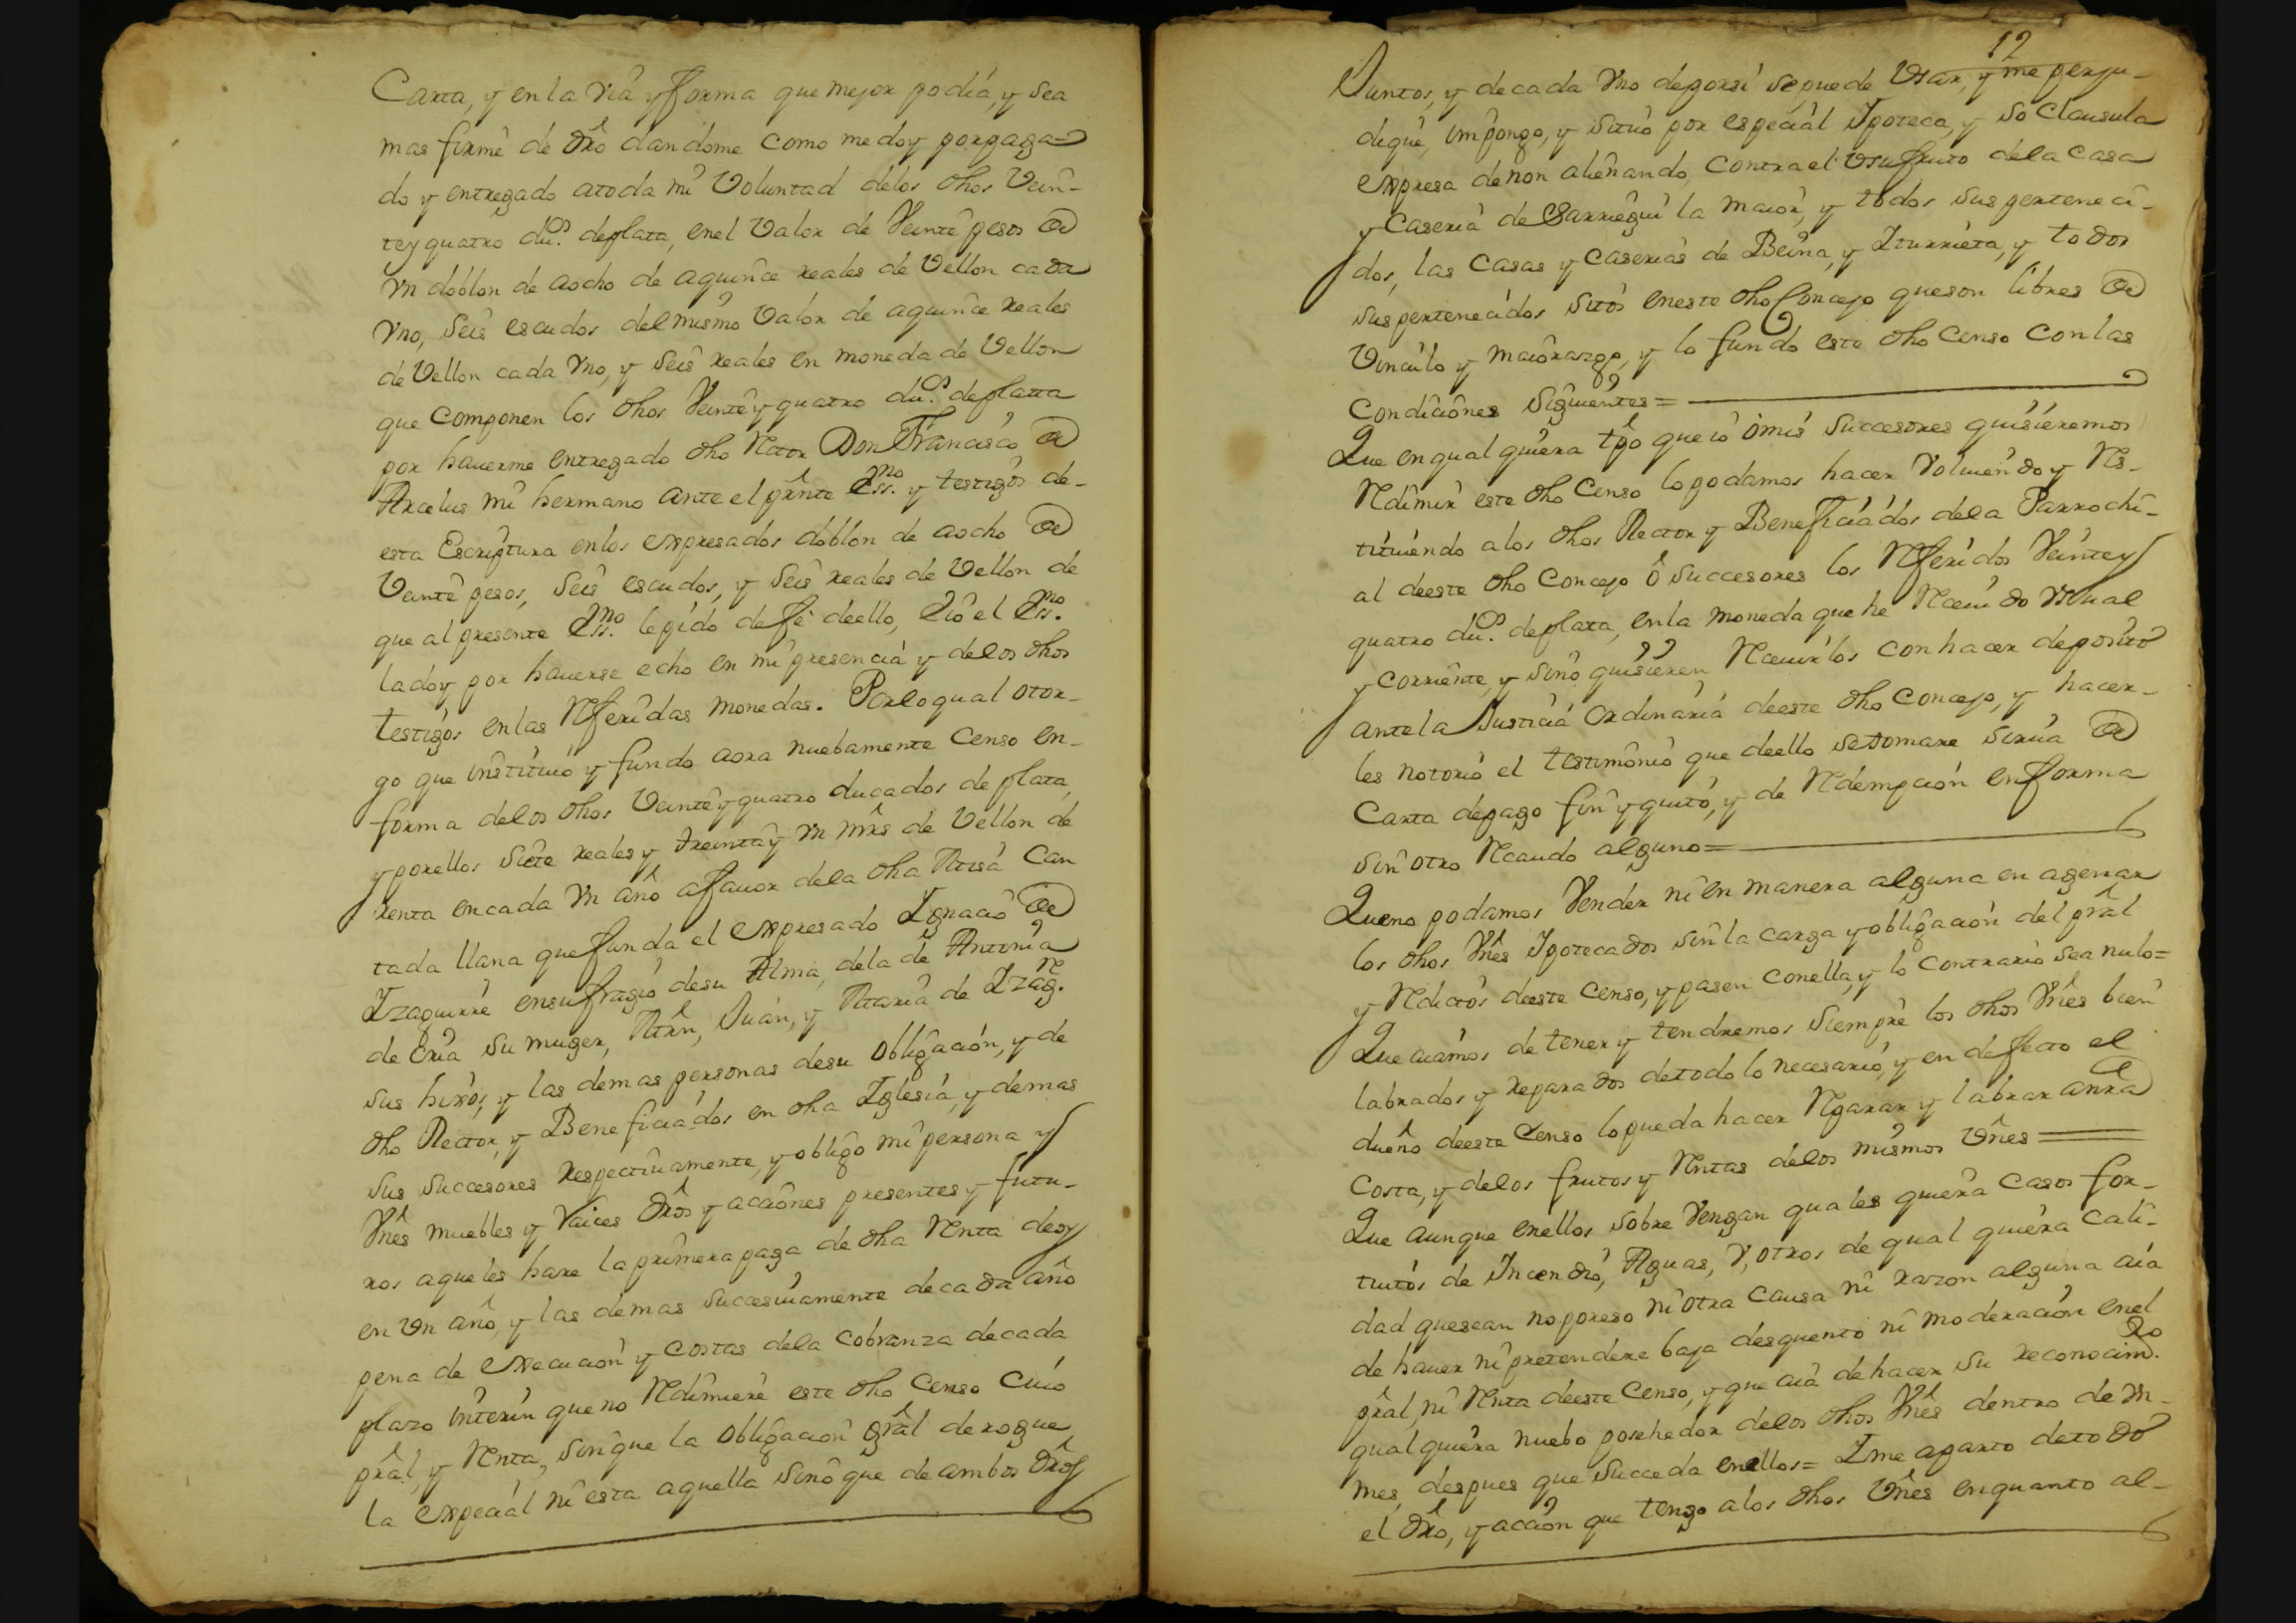 Carta, y en la via y forma que mejor podia, y sea
mas firme de dro dandome como me doy por paga-
do y entregado atoda mi Voluntad delos dhos Vein-
tey quatro du.s deplata, enel Valor de Veinte pesos de
Vn doblon de aocho de aquince reales de Vellon cada
Vno, seis escudos del mismo Valor de aquince reales
de Vellon cada Vno, y seis reales en moneda de Vellon
que componen los dhos Veinte y quatro du.s deplata
por hauerme entregado dho Retor Don Francisco de
Arcelus mi hermano ante el prnte Ess.no y testigos de-
esta Escriptura enlos expresados doblon de aocho de
Veinte pesos, seis escudos, y seis reales de Vellon de
que al presente Ess.no le pido de fe deello, Eio el Ess.no
ladoy por hauerse echo en mi presencia y delos dhos
testigos enlas Referidas monedas. Porloqual otor-
go que instituio y fundo aora nuebamente Censo en-
forma delos dhos Veinte y quatro ducados de plata,
y porellos siete reales y treinta y Vn mrs de Vellon de
renta encada Vn año afauor dela dha Misa Can
tada llana que funda el expresado Ignacio de
Yzaguirre ensufragio desu Alma, dela de Antonia
de Oria su muger, Mrn, Juan, y Maria de Yzag.re
sus hixos, y las demas personas desu obligacion, y de
dho Rector, y Beneficiados en dha Iglesia, y demas
sus successores respectiuamente, y obligo mi persona y
Vnes muebles y raices dros y acciones presentes y futu-
ros aqueles hare la primera paga de dha Renta deoy
en Vn año, y las demas successiuamente decada año
pena de execucion y costas dela cobranza decada
plazo interin que no Redimiere este dho Censo cuio
pral, y Renta, sinque la obligacion gral derogue
la especial ni esta aquella sino que de ambos dros
12
Juntos, y decada Vno deporsi sepuede Vsar, y me perju-
dique, impongo, y situo por especial Ypoteca, y so Clausula
expresa denon alienando, contra el Vsufruto dela Casa
y Caseria de Sarriegui la maior, y todos sus perteneci-
dos, las Casas y Caserias de Beina, y Yturrieta, y todos
sus pertenecidos sitos eneste dho Concejo queson libres de
Vinculo y maiorazgo, y lo fundo este dho Censo con las
condiciones siguientes=
Que enqual quiera tpo que io o mis successores quisieremos
Redimir este dho Censo lo podamos hacer Voluiendo y Res-
tituiendo alos dhos Rector y Beneficiados dela Parrochi-
al deeste dho Concejo o successores los Referidos Veinte y
quatro du.s deplata, en la moneda que he Receuido Vsual
y corriente, y sino quisieren Receuirlos con hacer deposito
antela Justicia ordinaria deeste dho Concejo, y hacer-
les notorio el testimonio que deello setomare sirua de
Carta depago fin y quito, y de Redempcion enforma
sin otro Recaudo alguno=
Queno podamos Vender ni en manera alguna en agenar
los dhos Vnes Ypotecados sin la carga y obligacion del pral
y Reditos deeste Censo, y pasen conella, y lo contrario sea nulo=
Que aiamos de tener y tendremos siempre los dhos Vnes bien
labrados y reparados detodo lo necesario, y en defecto el
dueño deeste Censo lopueda hacer Reparar y labrar anra
Costa, y delos frutos y Rentas delos mismos Vnes
Que aunque enellos sobre Vengan quales quiera casos for-
tuitos de Incendio, Aguas, V, otros de qual quiera cali-
dad quesean noporeso ni otra causa ni razon alguna aia
de hauer ni pretendere baja desquento ni moderacion enel
pral, ni Renta deeste Censo, y que aia de hacer su reconocim.to
qualquiera nuebo posehedor delos dhos Vnes dentro de Vn-
mes, despues que succeda enellos= I me aparto detodo
el dro, y accion que tengo alos dhos Vnes enquanto al-